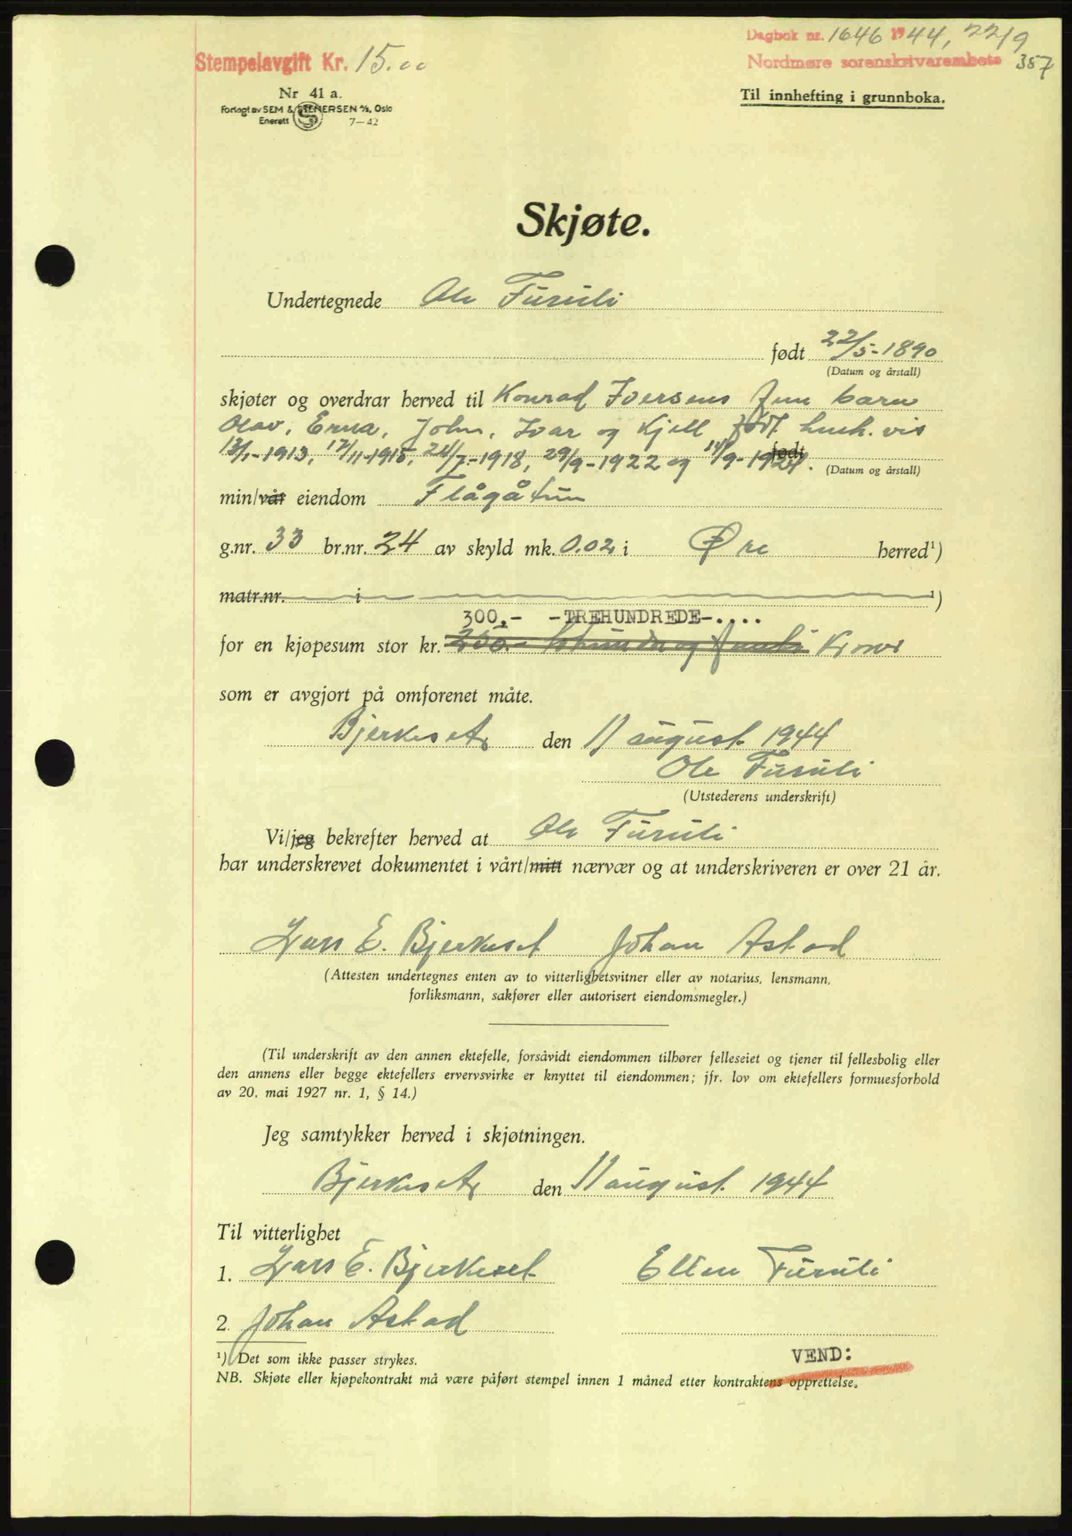 Dagbok nr. 1646 1944, 22/9
Stempelavgift Kr. 15.00
Nordmøre sorenskrivarembete 357
Nr 41 a.
Forlagt av SEM & STENERSEN A/S, Oslo
Enerett 7-42
Til innhefting i grunnboka.
Skjøte.
Undertegnede Ole Furuli
født 22/5-1890
(Datum og årstall)
skjøter og overdrar herved til Konrad Iversens fem barn
Olav, Erna, John, Ivar og Kjell født henh. vis
13/1-1913, 17/11-1915, 21/7-1918, 29/9-1922 og 14/9-1927. født
(Datum og årstall)
min/vår eiendom Flågåtun
g.nr. 33 br.nr. 24 av skyld mk. 0.02 i Øre herred¹)
matr.nr. i ¹)
300.- -TREHUNDREDE-....
for en kjøpesum stor kr. 250.- Kroner
som er avgjort på omforenet måte.
Bjerkeset den 11 august 1944
Ole Furuli
(Utstederens underskrift)
Vi/jeg bekrefter herved at Ole Furuli
har underskrevet dokumentet i vårt/mitt nærvær og at underskriveren er over 21 år.
Lars E. Bjerkeset Johan Astad
(Attesten undertegnes enten av to vitterlighetsvitner eller av notarius, lensmann,
forliksmann, sakfører eller autorisert eiendomsmegler.)
(Til underskrift av den annen ektefelle, forsåvidt eiendommen tilhører felleseiet og tjener til fellesbolig eller
den annens eller begge ektefellers ervervsvirke er knyttet til eiendommen; jfr. lov om ektefellers formuesforhold
av 20. mai 1927 nr. 1, § 14.)
Jeg samtykker herved i skjøtningen.
Bjerkeset den 11 august 1944
Til vitterlighet
1. Lars E. Bjerkeset Ellen Furuli
2. Johan Astad
¹) Det som ikke passer strykes.
VEND:
NB. Skjøte eller kjøpekontrakt må være påført stempel innen 1 måned etter kontraktens opprettelse.